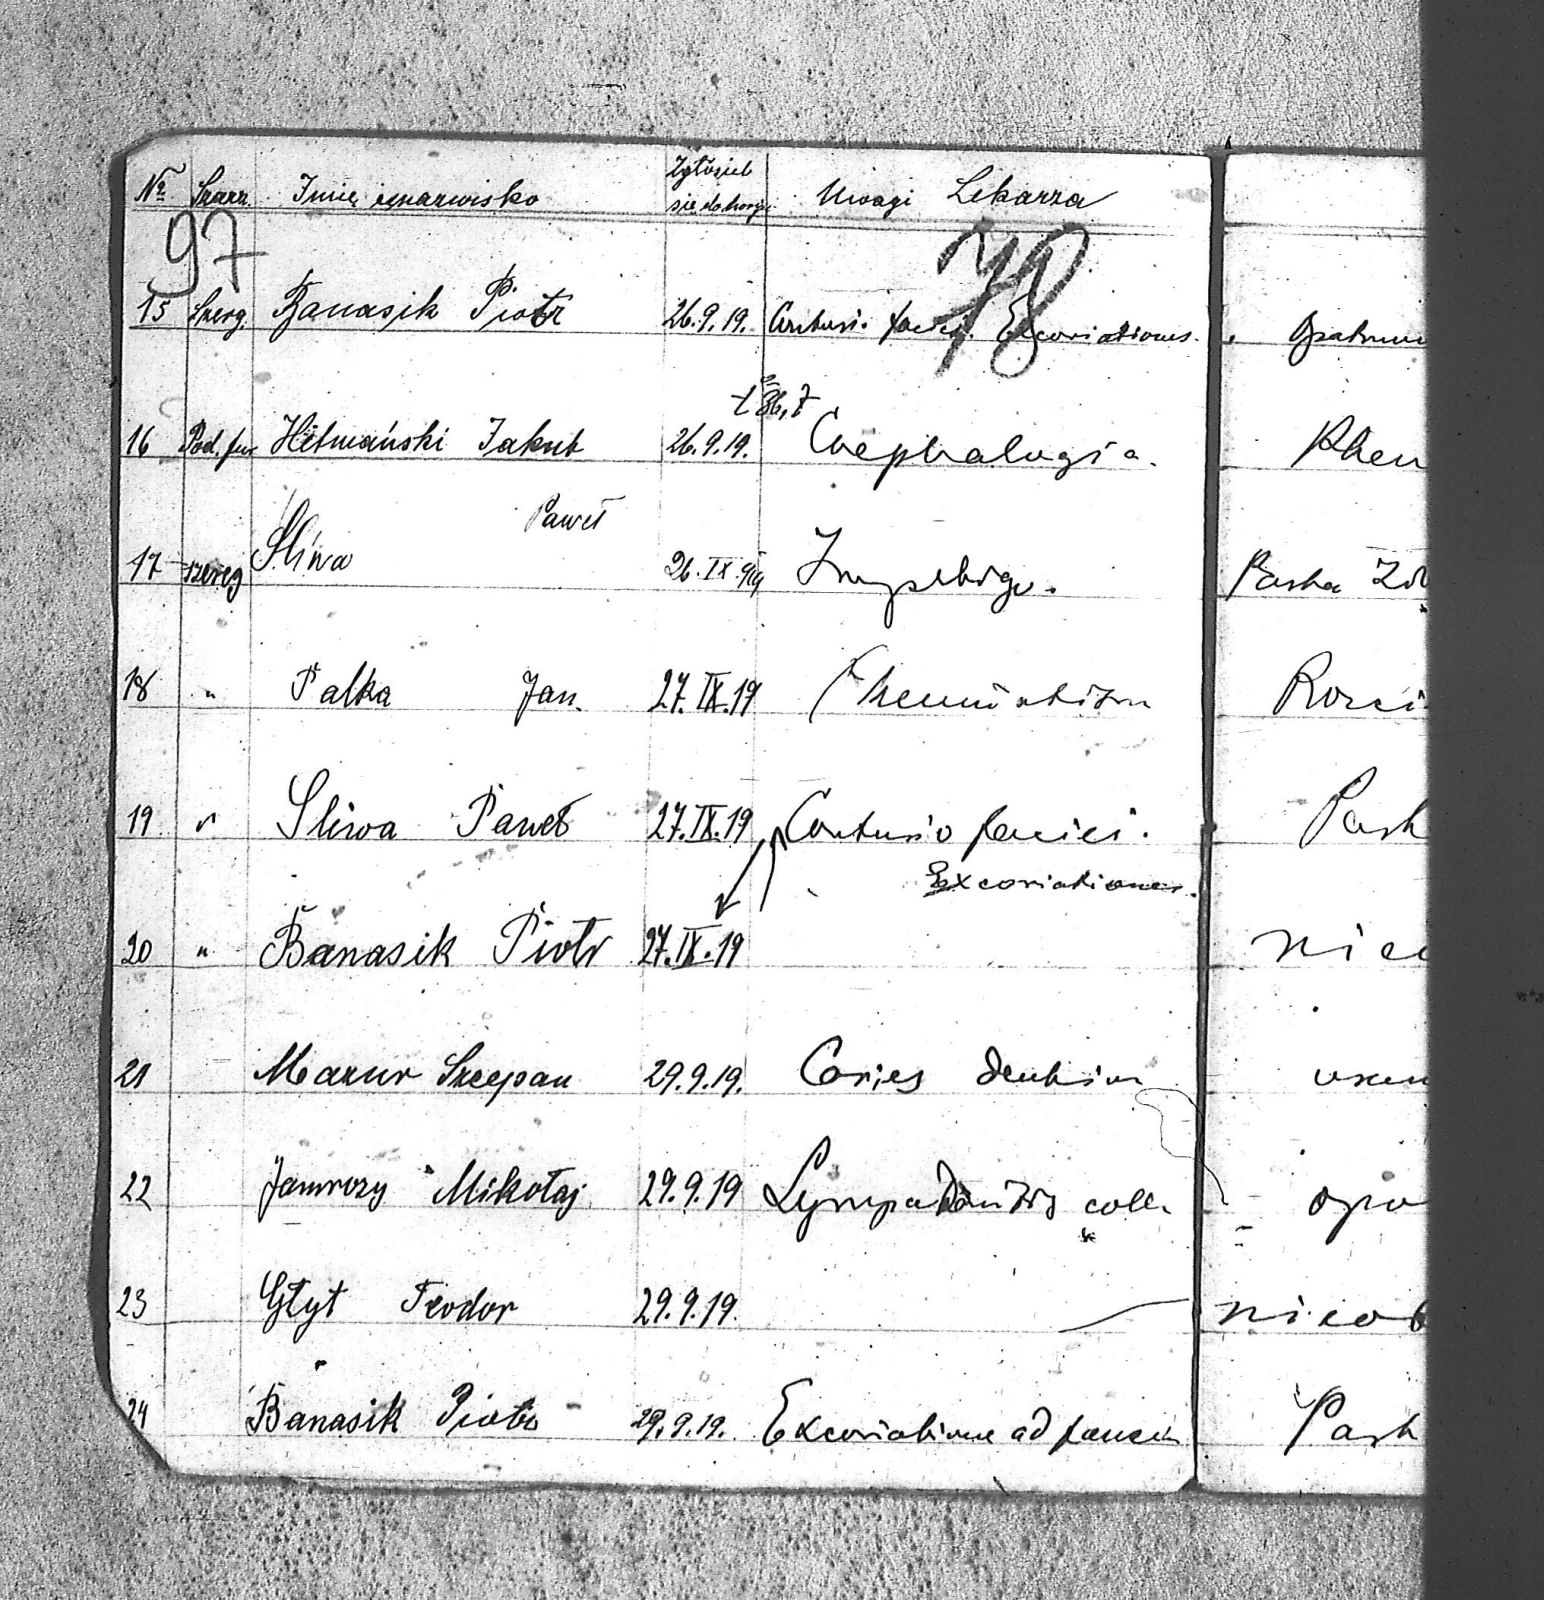 № Szarz. Imię i nazwisko Zgłosił Uwagi Lekarza
się do
97 78
15 Szereg. Banasik Piotr 26.9.19. Contusi. faciei. Excoriationes.
16 Hetmański Jakub 26.9.19. Caephalogia. Rheu
Paweł
17 szereg Sliwa 26.IX.919 Impetigo. Pasta
18 " Palka Jan. 27.IX.19 Rheumatism
19 " Sliwa Paweł 27.IX.19 Contusio faciei. Past
Excoriationes.
20 " Banasik Piotr 27.IX.19 nieo
21 Mazur Szczepan 29.9.19. Caries dentium
22 Jamrozy Mikołaj 29.9.19 Lympadenitis coll. opa
23 Głyt Teodor 29.9.19. nieob
24 Banasik Piotr 29.9.19. Excoriatione ad faciem Past